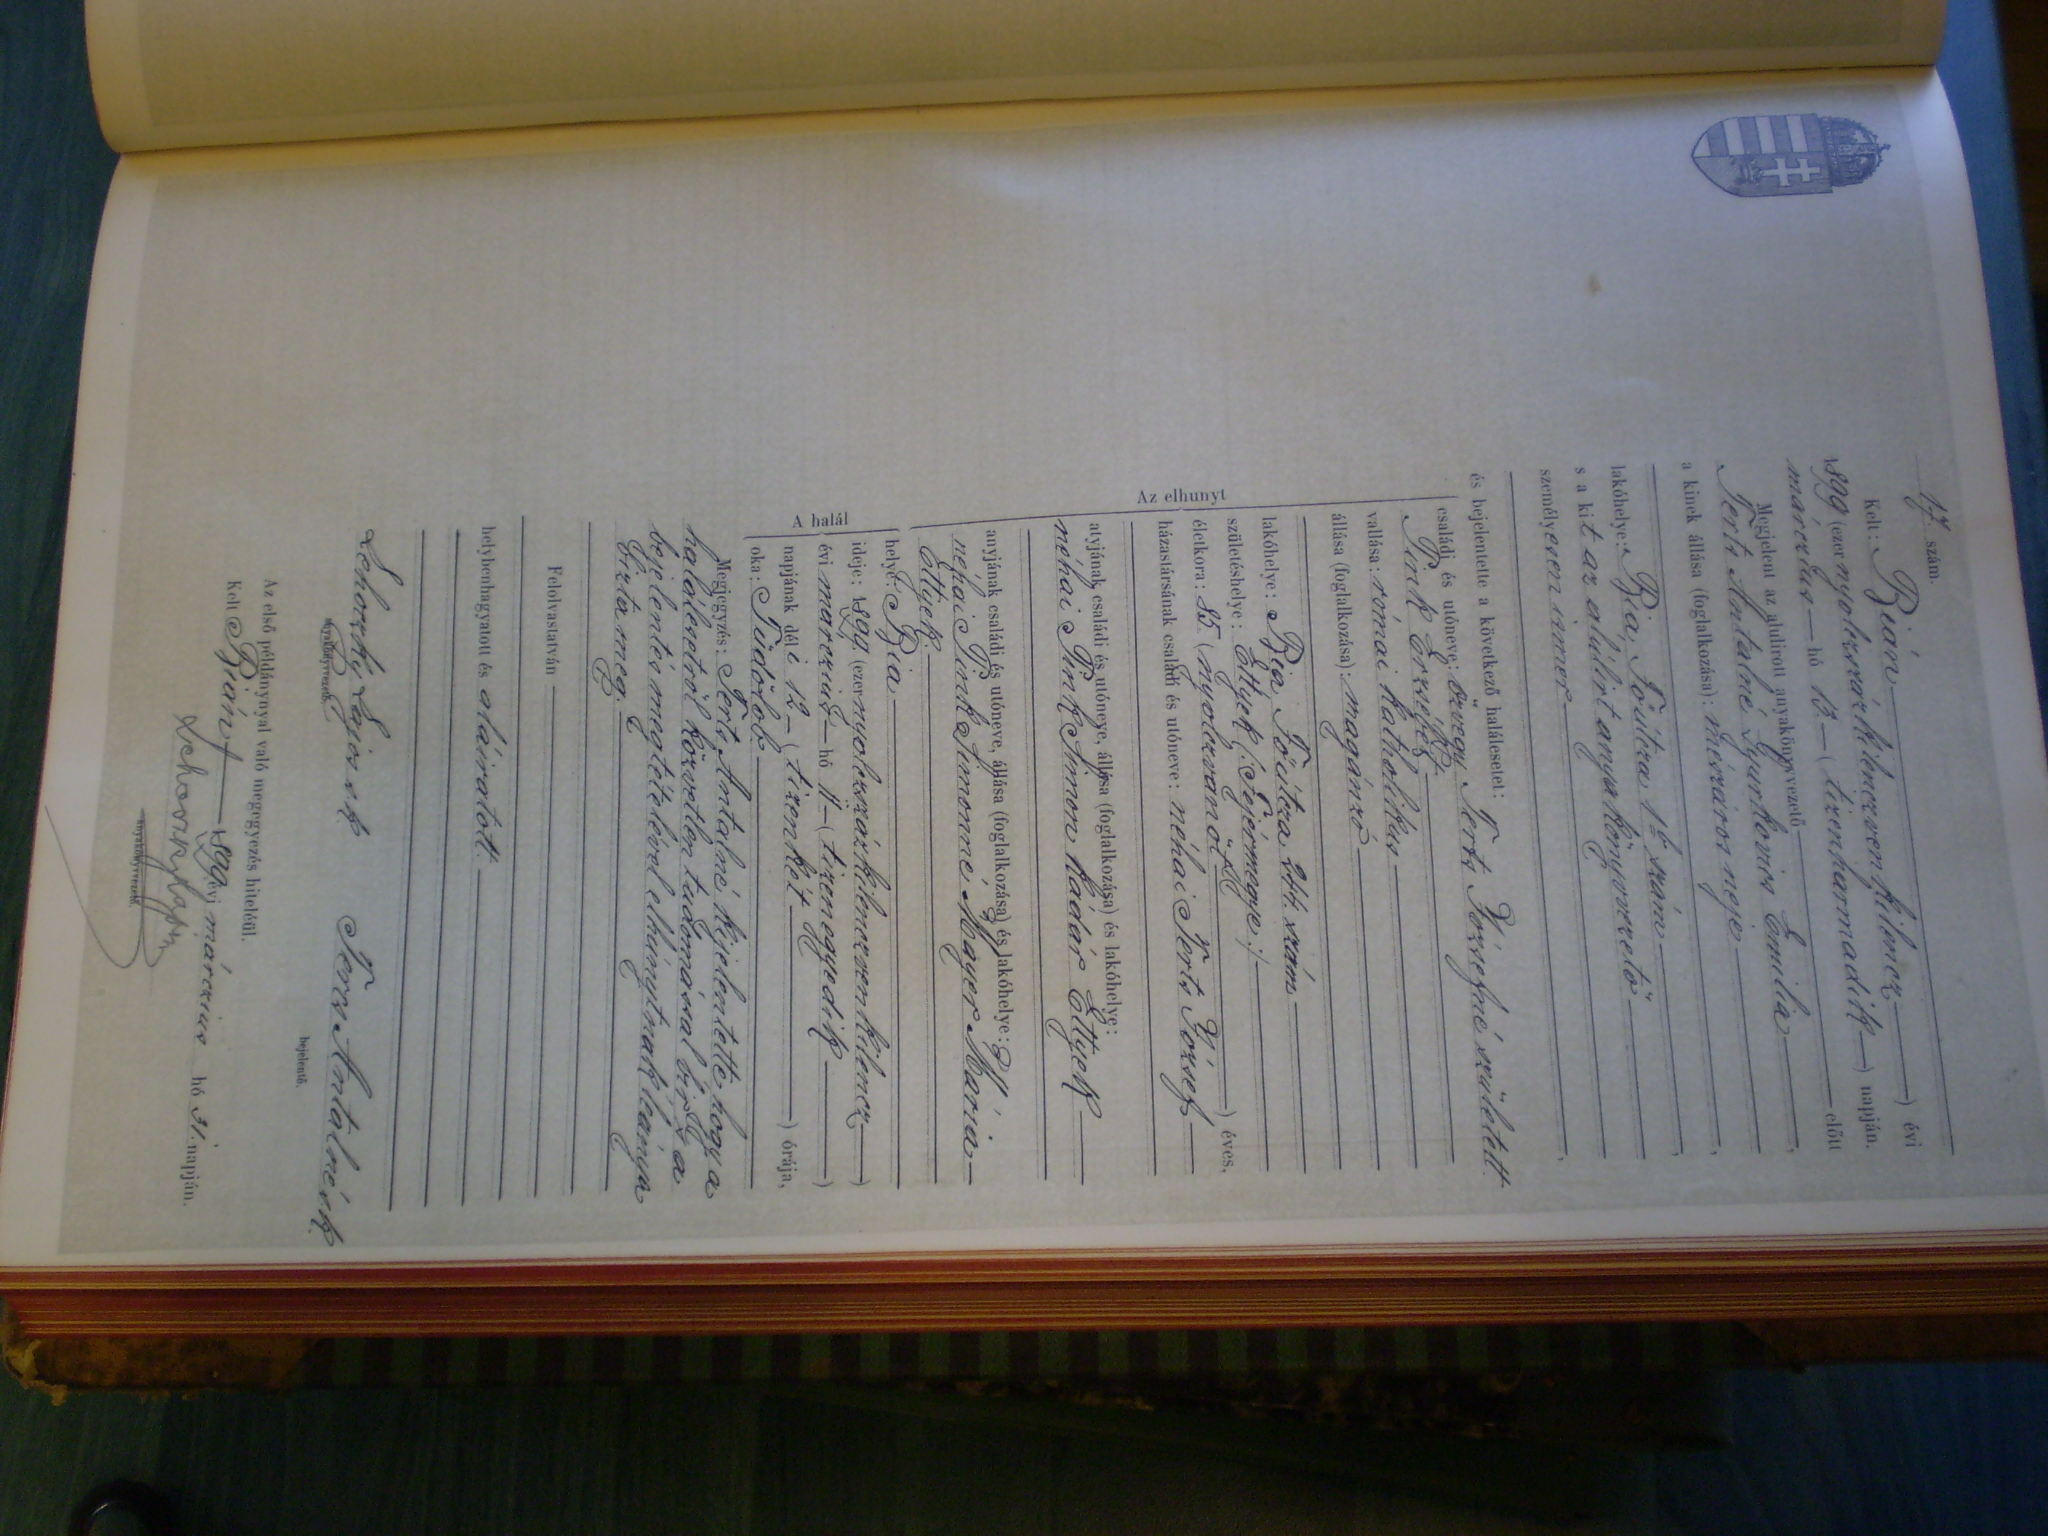 17. szám.
Kelt: Bián
1899 (ezer nyolczszázkilenczvenkilencz) évi
márczius hó 13 (tizenharmadik) napján.
Megjelent az alulirott anyakönyvvezető előtt
Terts Antalné Gyurkovics Emilia,
a kinek állása (foglalkozása): mészáros neje,
lakóhelye: Bia, Főutcza szám,
s a kit az alulirt anyakönyvvezető
személyesen ismer,
és bejelentette a következő halálesetet:
Az elhunyt
családi és utóneve: özvegy Terts Józsefné született
Pink Erzsébet
vallása: római katholikus
állása (foglalkozása): magánzó
lakóhelye: Bia, Főutcza szám
születéshelye: Ettyek (: Fejérmegye :)
életkora: 85 (nyolczvanöt) éves,
házastársának családi és utóneve: néhai Terts József
atyjának családi és utóneve, állása (foglalkozása) és lakóhelye:
néhai Pink Simon kádár Ettyek
anyjának családi és utóneve, állása (foglalkozása) és lakóhelye:
néhai Pink Simonné Mayer Mária
Ettyek
A halál
helye: Bia
ideje: 1899 (ezer nyolczszázkilenczvenkilencz)
évi márczius hó 11 (tizenegyedik)
napjának déli 12 (tizenkét) órája,
oka: Tüdőlob
Megjegyzés: Terts Antalné kijelentette hogy a
halálesetről közvetlen tudomással bir a
bejelentés megtételével elhúnytnak leánya
bizta meg.
Felolvastatván
helybenhagyatott és aláiratott.
Lajos sk. Terts Antalné sk.
anyakönyvvezető bejelentő.
Az első példánynyal való megegyezés hiteléül.
Kelt Bián 1899 évi márczius hó 31. napján.
anyakönyvvezető